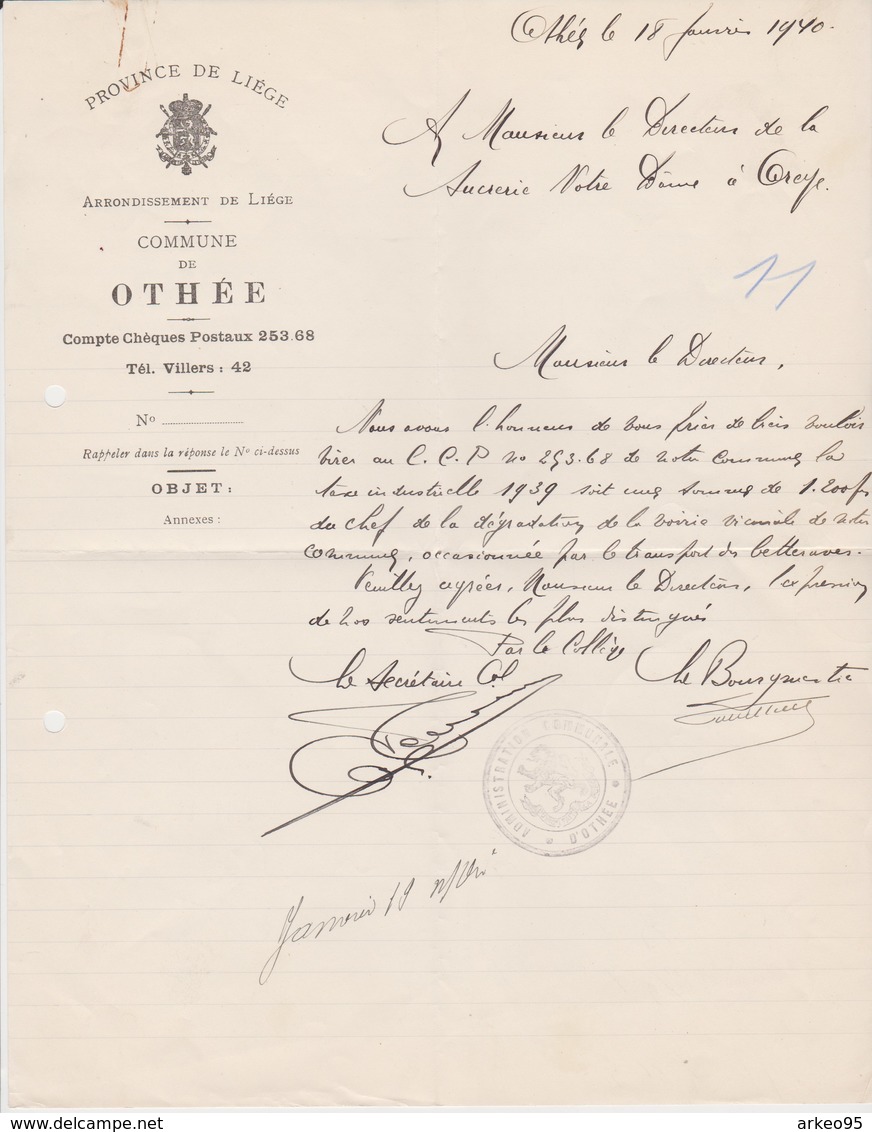 Othée le 18 Janvier 1940.
PROVINCE DE LIÉGE
ARRONDISSEMENT DE LIÉGE
COMMUNE
DE
OTHÉE
Compte Chèques Postaux 253.68
Tél. Villers : 42
No
Rappeler dans la réponse le No ci-dessus
OBJET :
Annexes :
A Monsieur le Directeur de la
Sucrerie Notre Dame à Oreye.
11
Monsieur le Directeur,
Nous avons l'honneur de vous prier de bien vouloir
virer au C.C.P no 253.68 de notre commune la
taxe industrielle 1939 soit une somme de 1.200frs
du chef de la dégradation de la voirie vicinale de notre
commune, occasionnée par le transport des betteraves.
Veuillez agréer, Monsieur le Directeur, l'expression
de nos sentiments les plus distingués
Par le Collège
Le Secrétaire Cal
Le Bourgmestre
ADMINISTRATION COMMUNALE
D'OTHÉE
Janvier 19
www.delcampe.net
arkeo95